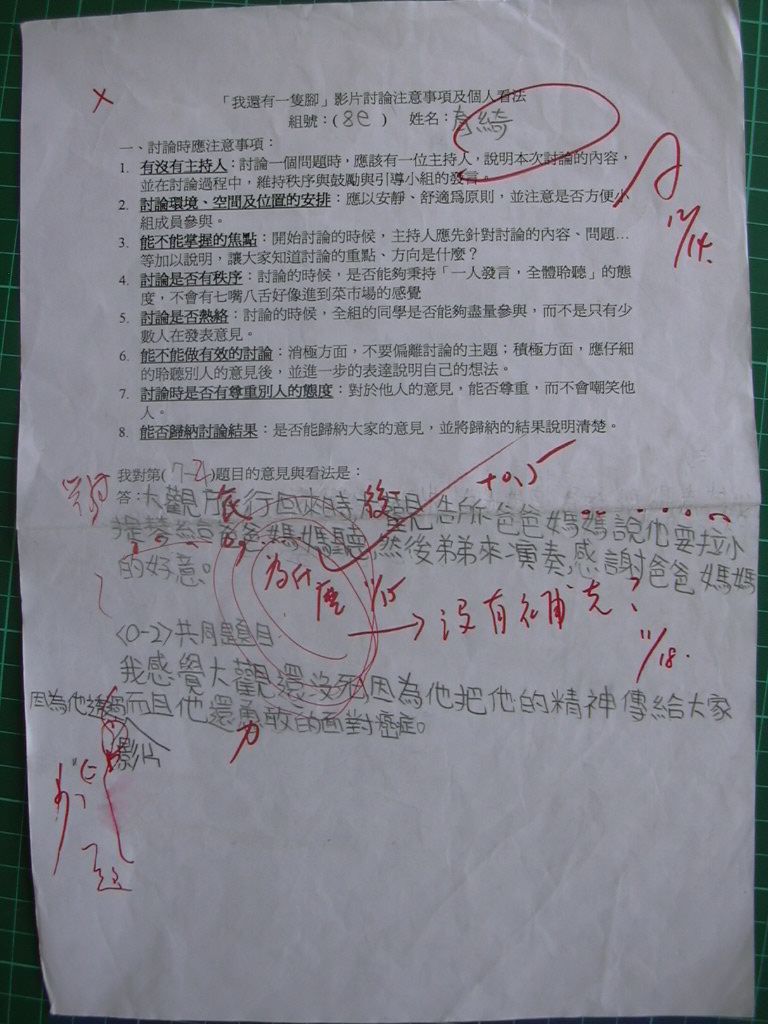 「我還有一隻腳」影片討論注意事項及個人看法
組號：(8e) 姓名： 綺
一、討論時應注意事項：
1. 有沒有主持人：討論一個問題時，應該有一位主持人，說明本次討論的內容，
並在討論過程中，維持秩序與鼓勵與引導小組的發言。
2. 討論環境、空間及位置的安排：應以安靜、舒適為原則，並注意是否方便小
組成員參與。
3. 能不能掌握的焦點：開始討論的時候，主持人應先針對討論的內容、問題…
等加以說明，讓大家知道討論的重點、方向是什麼？
4. 討論是否有秩序：討論的時候，是否能夠秉持「一人發言，全體聆聽」的態
度，不會有七嘴八舌好像進到菜市場的感覺
5. 討論是否熱絡：討論的時候，全組的同學是否能夠盡量參與，而不是只有少
數人在發表意見。
6. 能不能做有效的討論：消極方面，不要偏離討論的主題；積極方面，應仔細
的聆聽別人的意見後，並進一步的表達說明自己的想法。
7. 討論時是否有尊重別人的態度：對於他人的意見，能否尊重，而不會嘲笑他
人。
8. 能否歸納討論結果：是否能歸納大家的意見，並將歸納的結果說明清楚。
12/14.
我對第(7-2)題目的意見與看法是：
+0.5
答：大觀 旅行回來時 後 大觀見告所爸爸媽媽說他要拉小
提琴給爸爸媽媽聽，然後弟弟來演奏，感謝爸爸媽媽
的好意。
為什麼 11/15
沒有補充？
11/18.
<0-2>共同題目
我感覺大觀還沒死因為他把他的精神傳給大家
因為他 而且他還勇敢的面對癌症。
力
影片